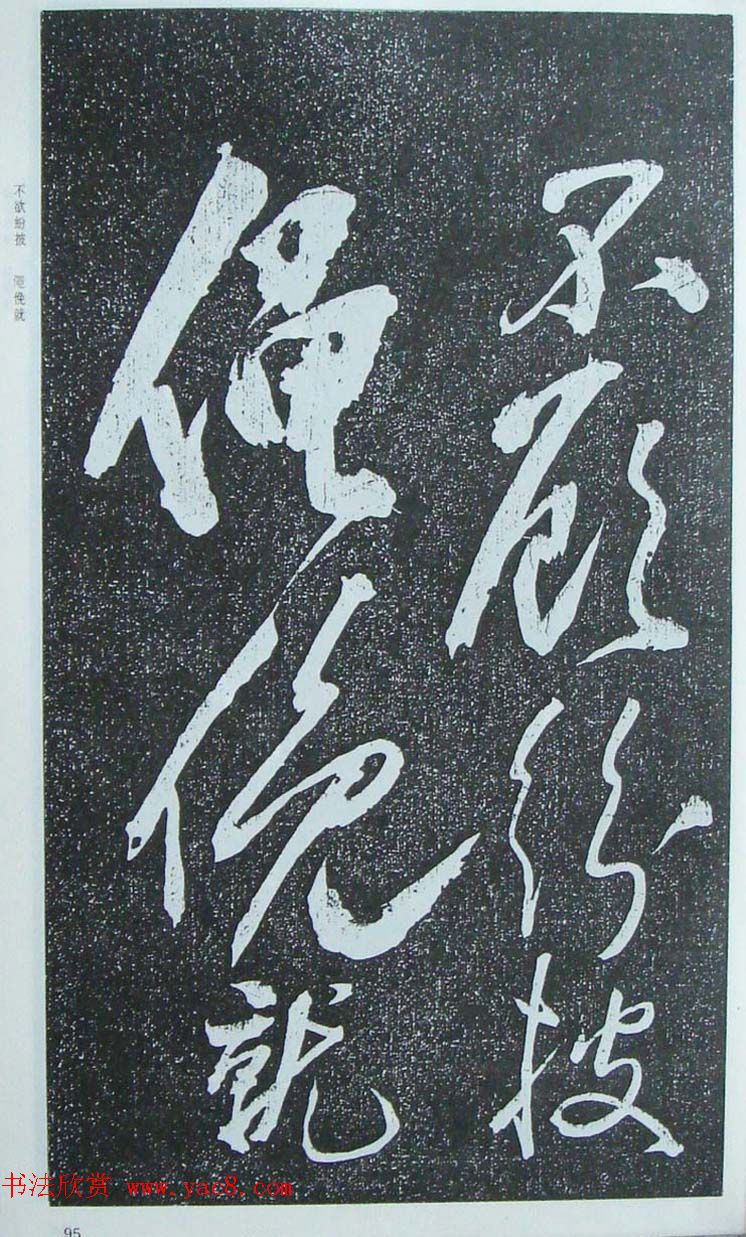 不顧紛披
僶俛就
不欲紛披 僶俛就
书法欣赏 www.yac8.com
95